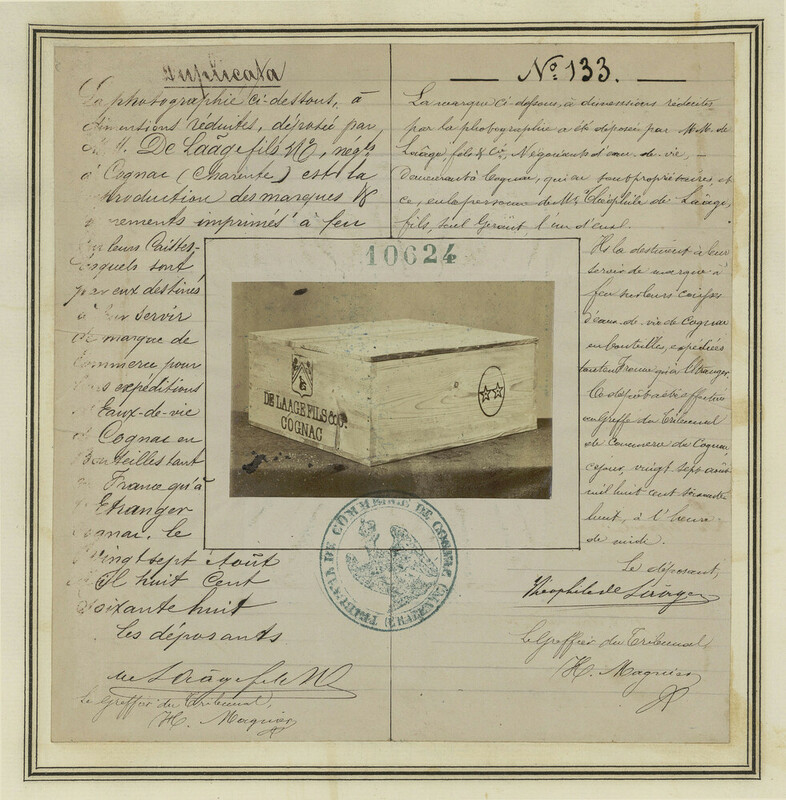 Duplicata
La photographie ci-dessous, à
dimensions réduites, déposée par
M.M. De Laâge fils & Cie, négts
à Cognac (Charente) est la
reproduction des marques &
imprimés à feu
sur leurs Caisses,
lesquels sont
par eux destinés
à leur servir
de marque de
Commerce pour
leurs expéditions
d'Eaux-de-vie
de Cognac en
Bouteilles tant
en France qu'à
l'Etranger
Cognac, le
Vingt sept Août
Mil huit Cent
Soixante huit
Les déposants
de Laâge fils & Cie
Le Greffier du Tribunal,
H. Magnier
No. 133.
La marque ci-dessous, à dimensions réduites
par la photographie a été déposée par M.M. de
Laâge, fils & Cie, Négociants d'eau-de-vie,
demeurant à Cognac, qui en sont propriétaires, et
ce, en la personne de Mr. Théophile de Laâge
fils, seul Gérant l'un d'eux.
Ils la destinent à leur
servir de marque à
feu sur leurs caisses
d'eau-de-vie de Cognac
en bouteille, expédiées
tant en France qu'à l'étranger.
Ce dépôt a été effectué
au Greffe du Tribunal
de Commerce de Cognac
ce jour, vingt sept août
mil huit cent soixante
huit, à l'heure
de midi.
Le déposant,
Théophile de Laâge
Le Greffier du Tribunal
H. Magnier
10624
DE LAAGE FILS & Co.
COGNAC
TRIBUNAL DE COMMERCE DE COGNAC (CHARENTE)